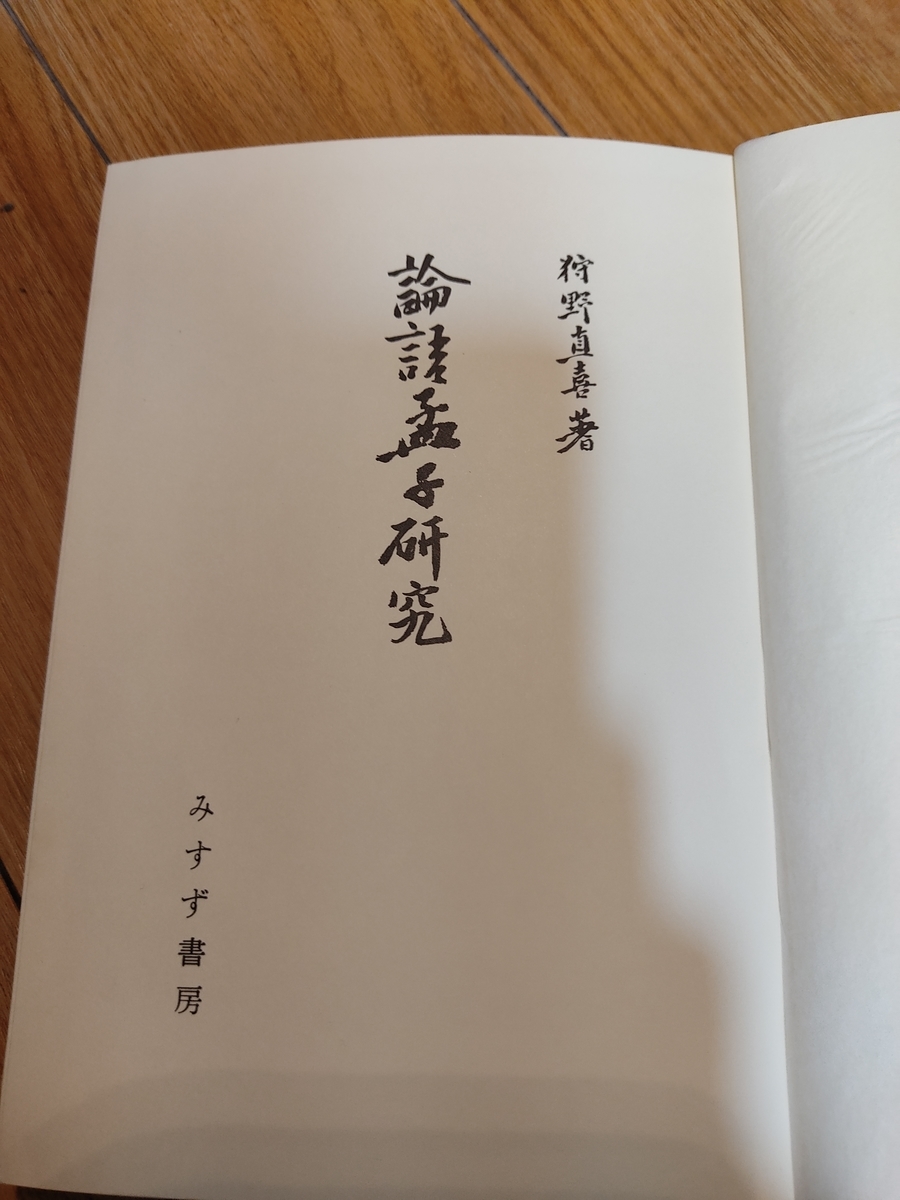 狩野直喜著
論語孟子研究
みすず書房